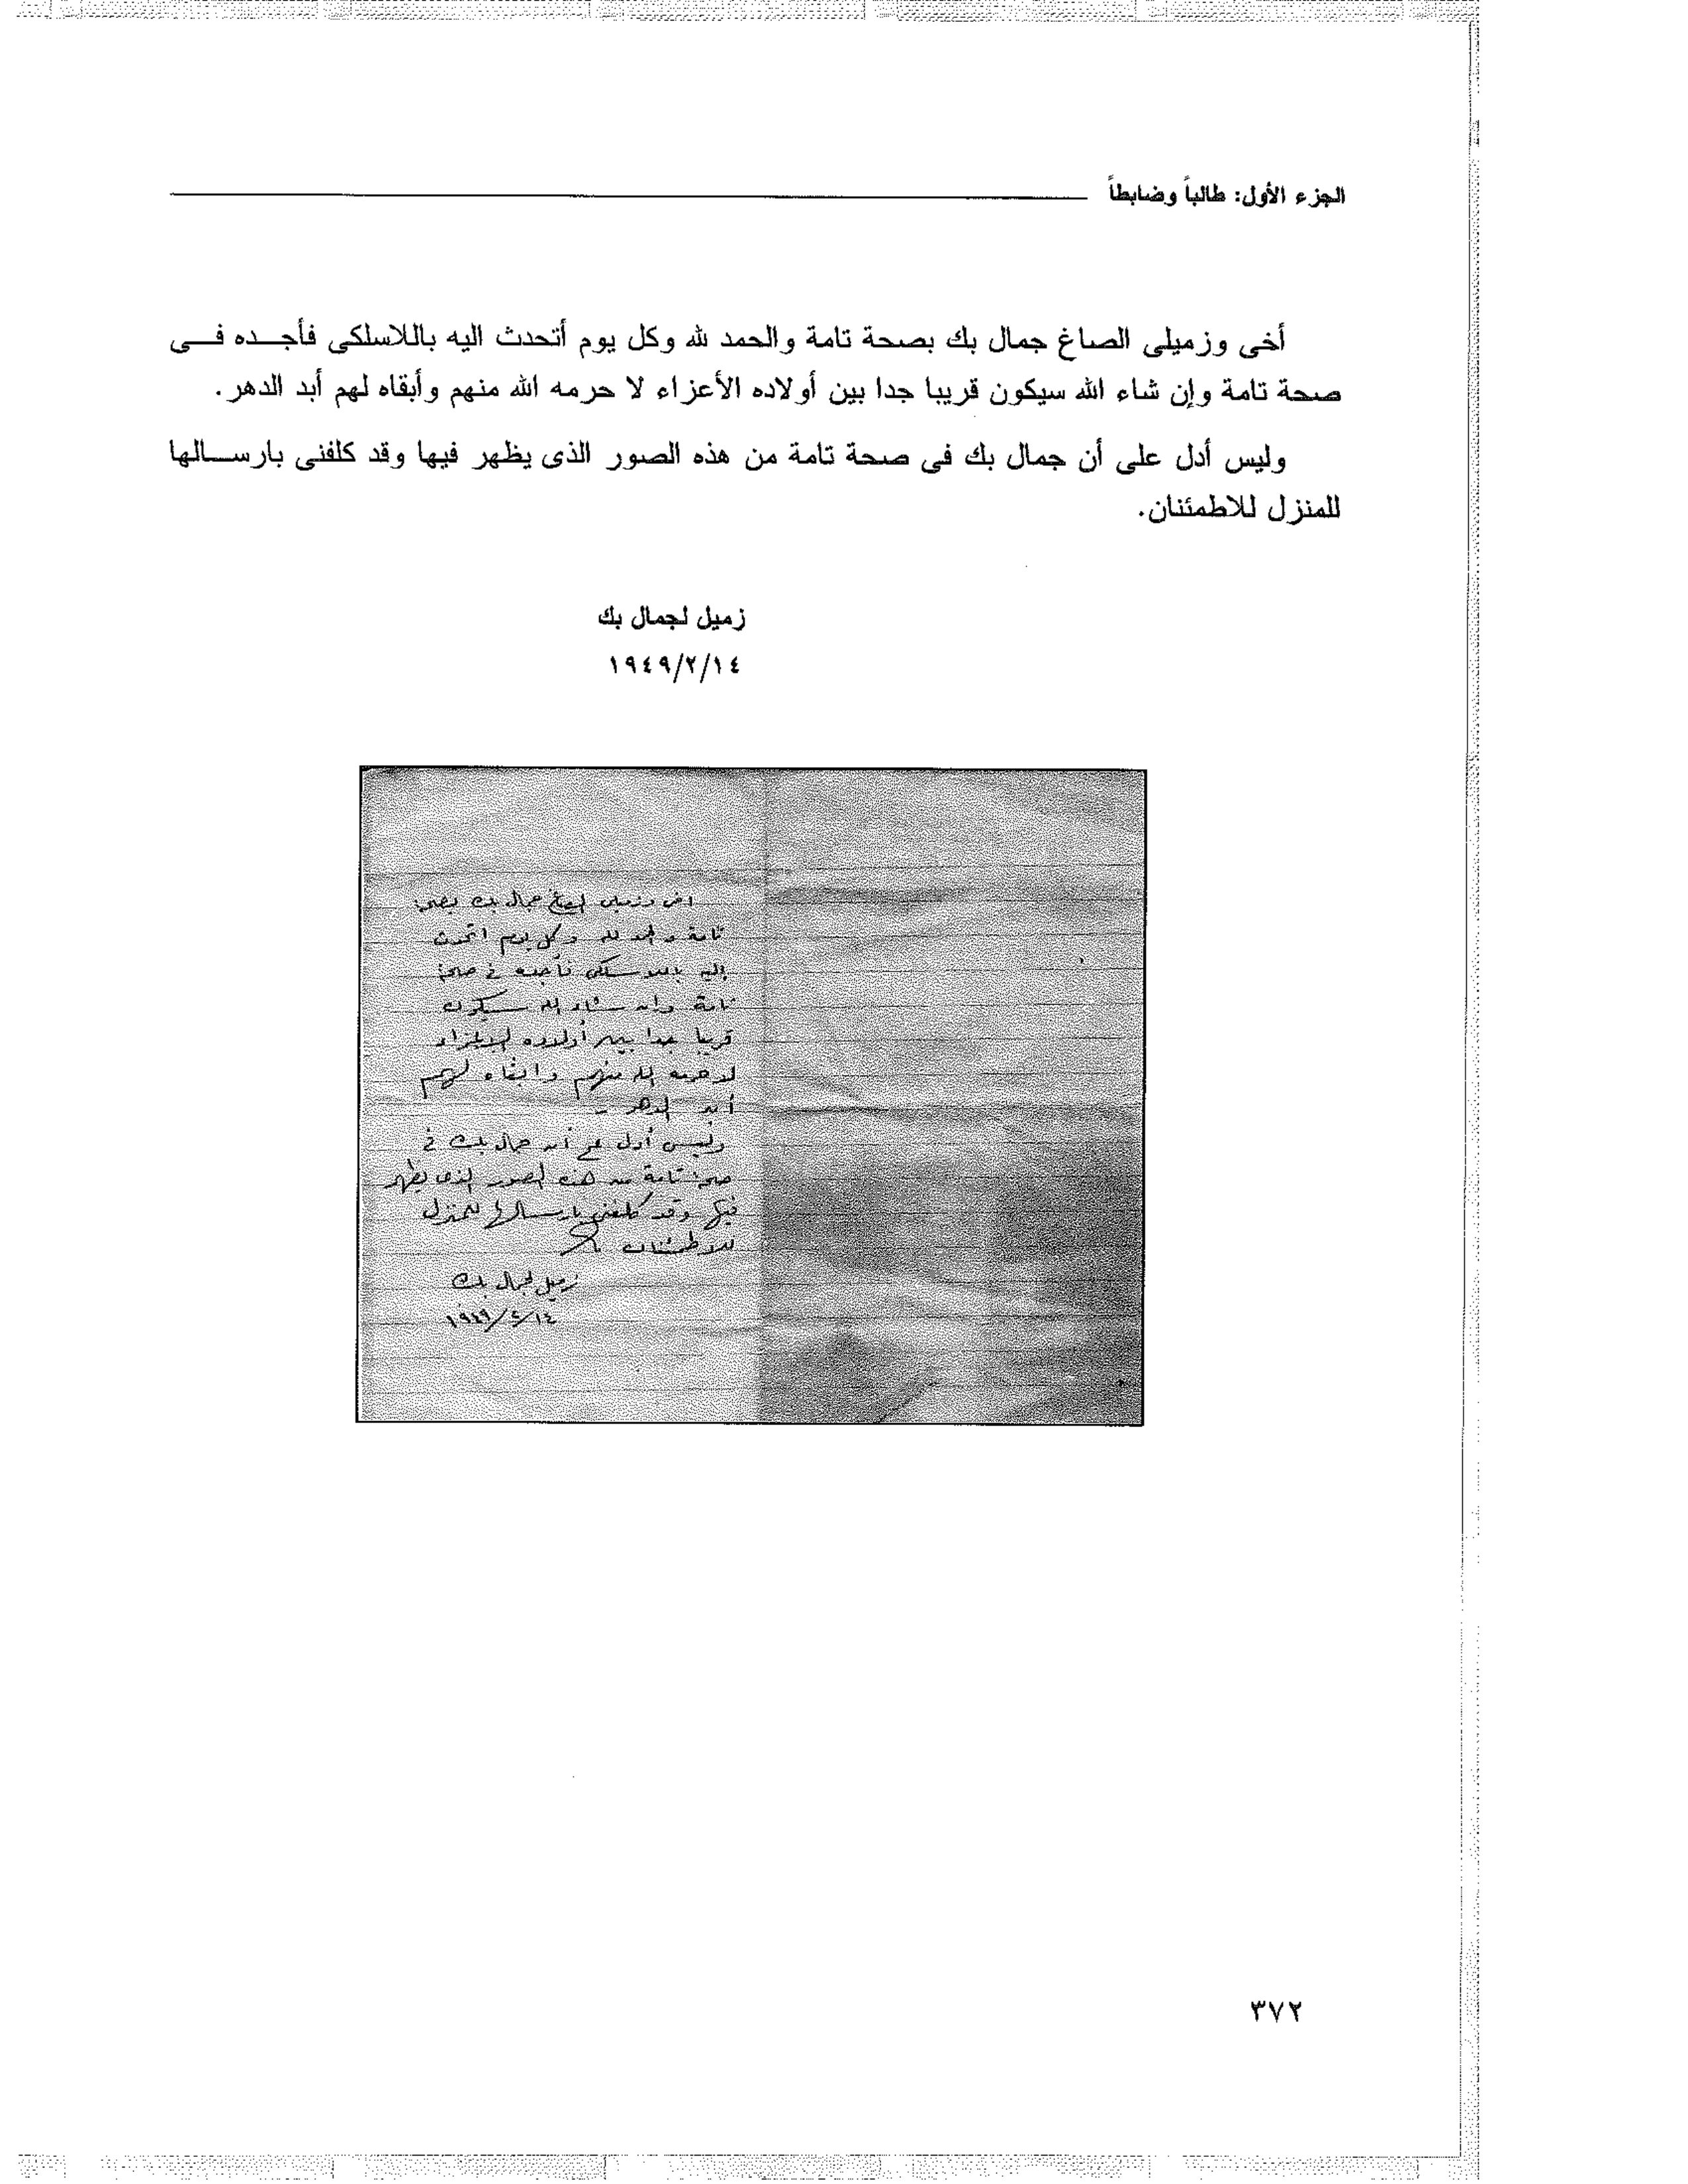 الجزء الأول: طالباً وضابطاً
أخى وزميلى الصاغ جمال بك بصحة تامة والحمد لله وكل يوم أتحدث اليه باللاسلكى فأجـــده فـــى
صحة تامة وإن شاء الله سيكون قريبا جدا بين أولاده الأعزاء لا حرمه الله منهم وأبقاه لهم أبد الدهر.
وليس أدل على أن جمال بك فى صحة تامة من هذه الصور الذى يظهر فيها وقد كلفنى بارســـالها
للمنزل للاطمئنان.
زميل لجمال بك
١٩٤٩/٢/١٤
اخى وزميلى الصاغ جمال بك بصحة
تامة والحمد لله وكل يوم اتحدث
إليه باللاسلكى فأجده فى صحة
تامة وان شاء الله سيكون
قريبا جدا بين أولاده الأعزاء
لا حرمه الله منهم وابقاه لهم
أبد الدهر -
وليس أدل على أن جمال بك فى
صحة تامة من هذه الصور الذى يظهر
فيها وقد كلفنى بارسالها للمنزل
للاطمئنان
زميل لجمال بك
١٩٤٩/٢/١٤
٣٧٢